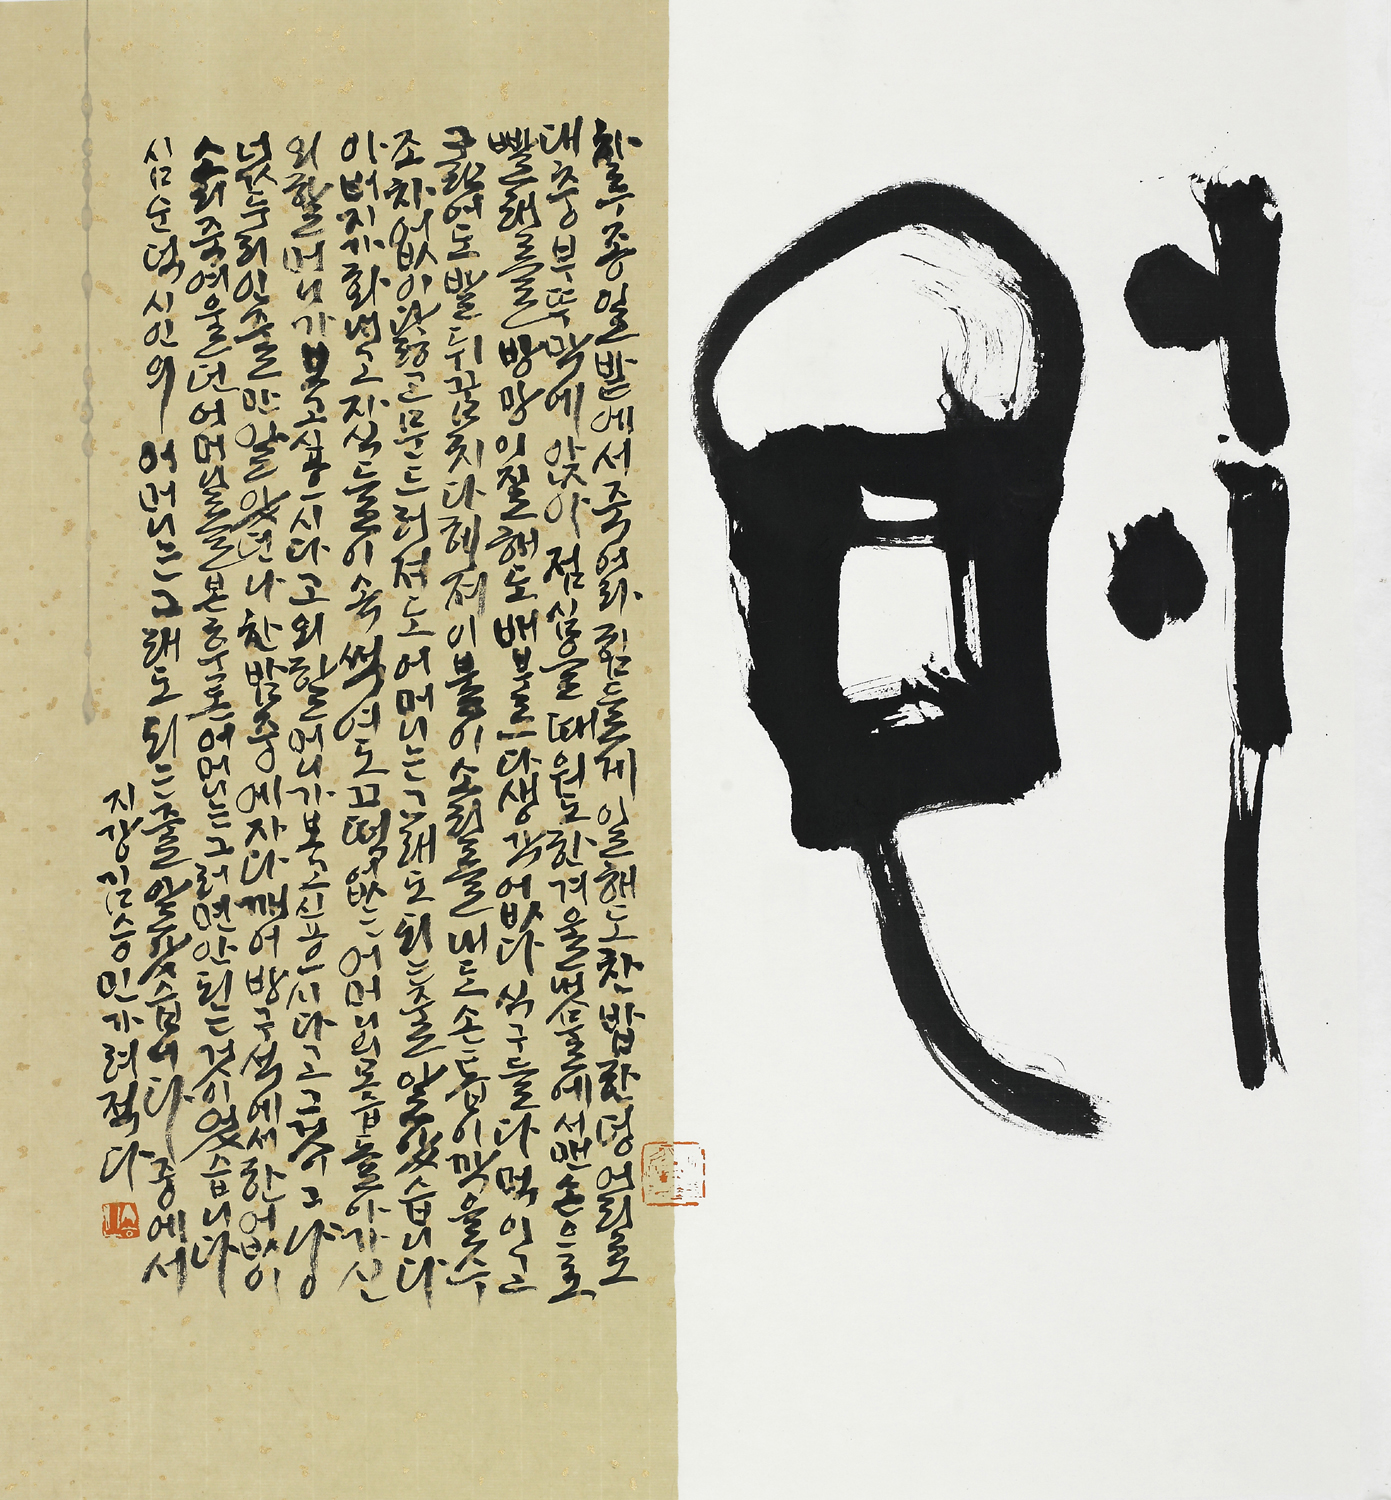 어머니
하루종일밭에서죽어라힘들게일해도찬밥한덩어리로
대충부뚜막에앉아점심을때워도한겨울냇물에서맨손으로
빨래를방망이질해도배부르다생각없다식구들다먹이고
굶어도발뒤꿈치다헤져이불이소리를내도손톱이깎을수
조차없이닳고문드러져도어머니는그래도되는줄알았습니다
아버지가화내고자식들이속썩여도끄떡없는어머니의모습돌아가신
외할머니가보고싶으시다고외할머니가보고싶으시다고그것이그냥
넋두리인줄만알았던나한밤중에자다깨어방구석에서한없이
소리죽여울던어머니를본후론어머니는그러면안되는것이었습니다
심순덕시인의 어머니는그래도되는줄알았습니다 중에서
지강김승민가려적다